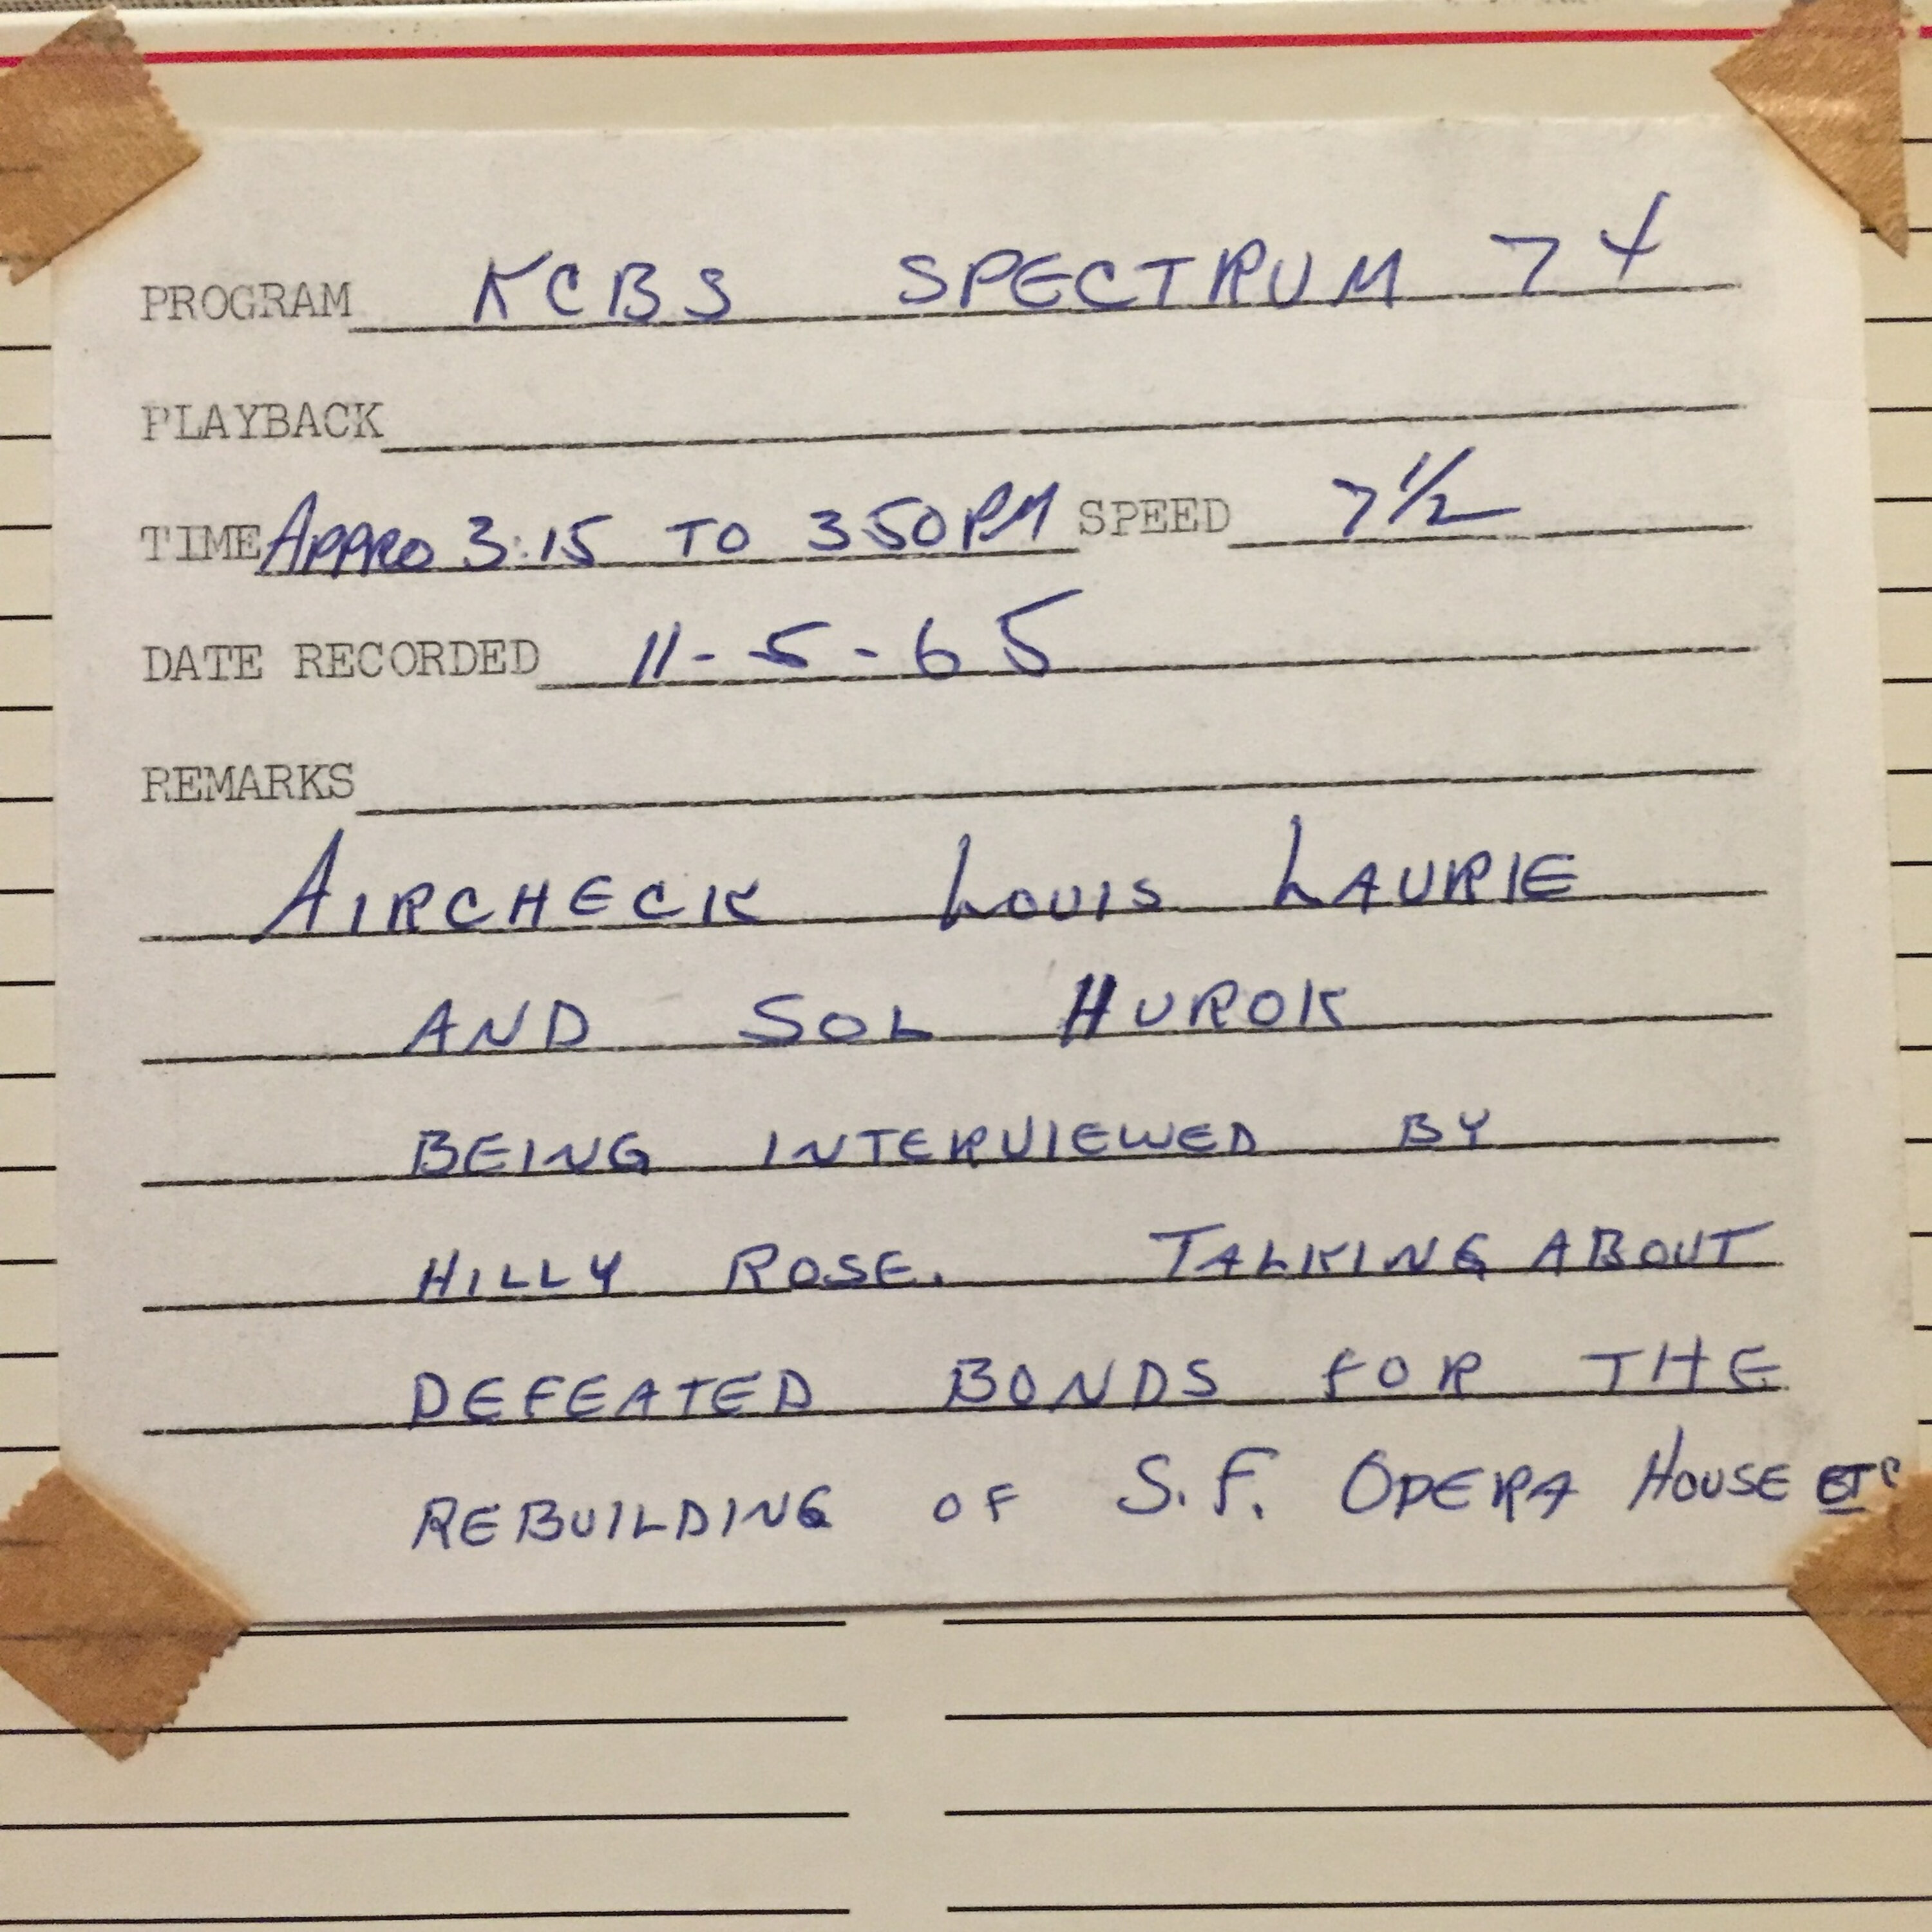 PROGRAM KCBS SPECTRUM 74
PLAYBACK
TIME APPRO 3:15 TO 350 PM SPEED 7 1/2
DATE RECORDED 11-5-65
REMARKS
AIRCHECK LOUIS LAURIE
AND SOL HUROK
BEING INTERVIEWED BY
HILLY ROSE. TALKING ABOUT
DEFEATED BONDS FOR THE
REBUILDING OF S.F. OPERA HOUSE ETC